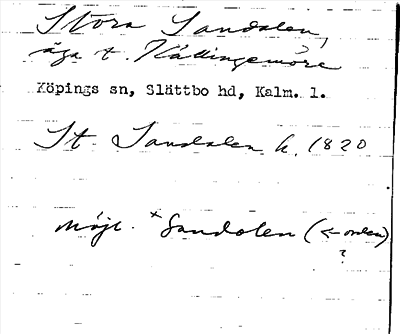 Stora Sandalen,
äga t. Källingemöre
Köpings sn, Slättbo hd, Kalm. l.
St. Sandalen h. 1820
Möjl. *Sandolen (<- orden)
?